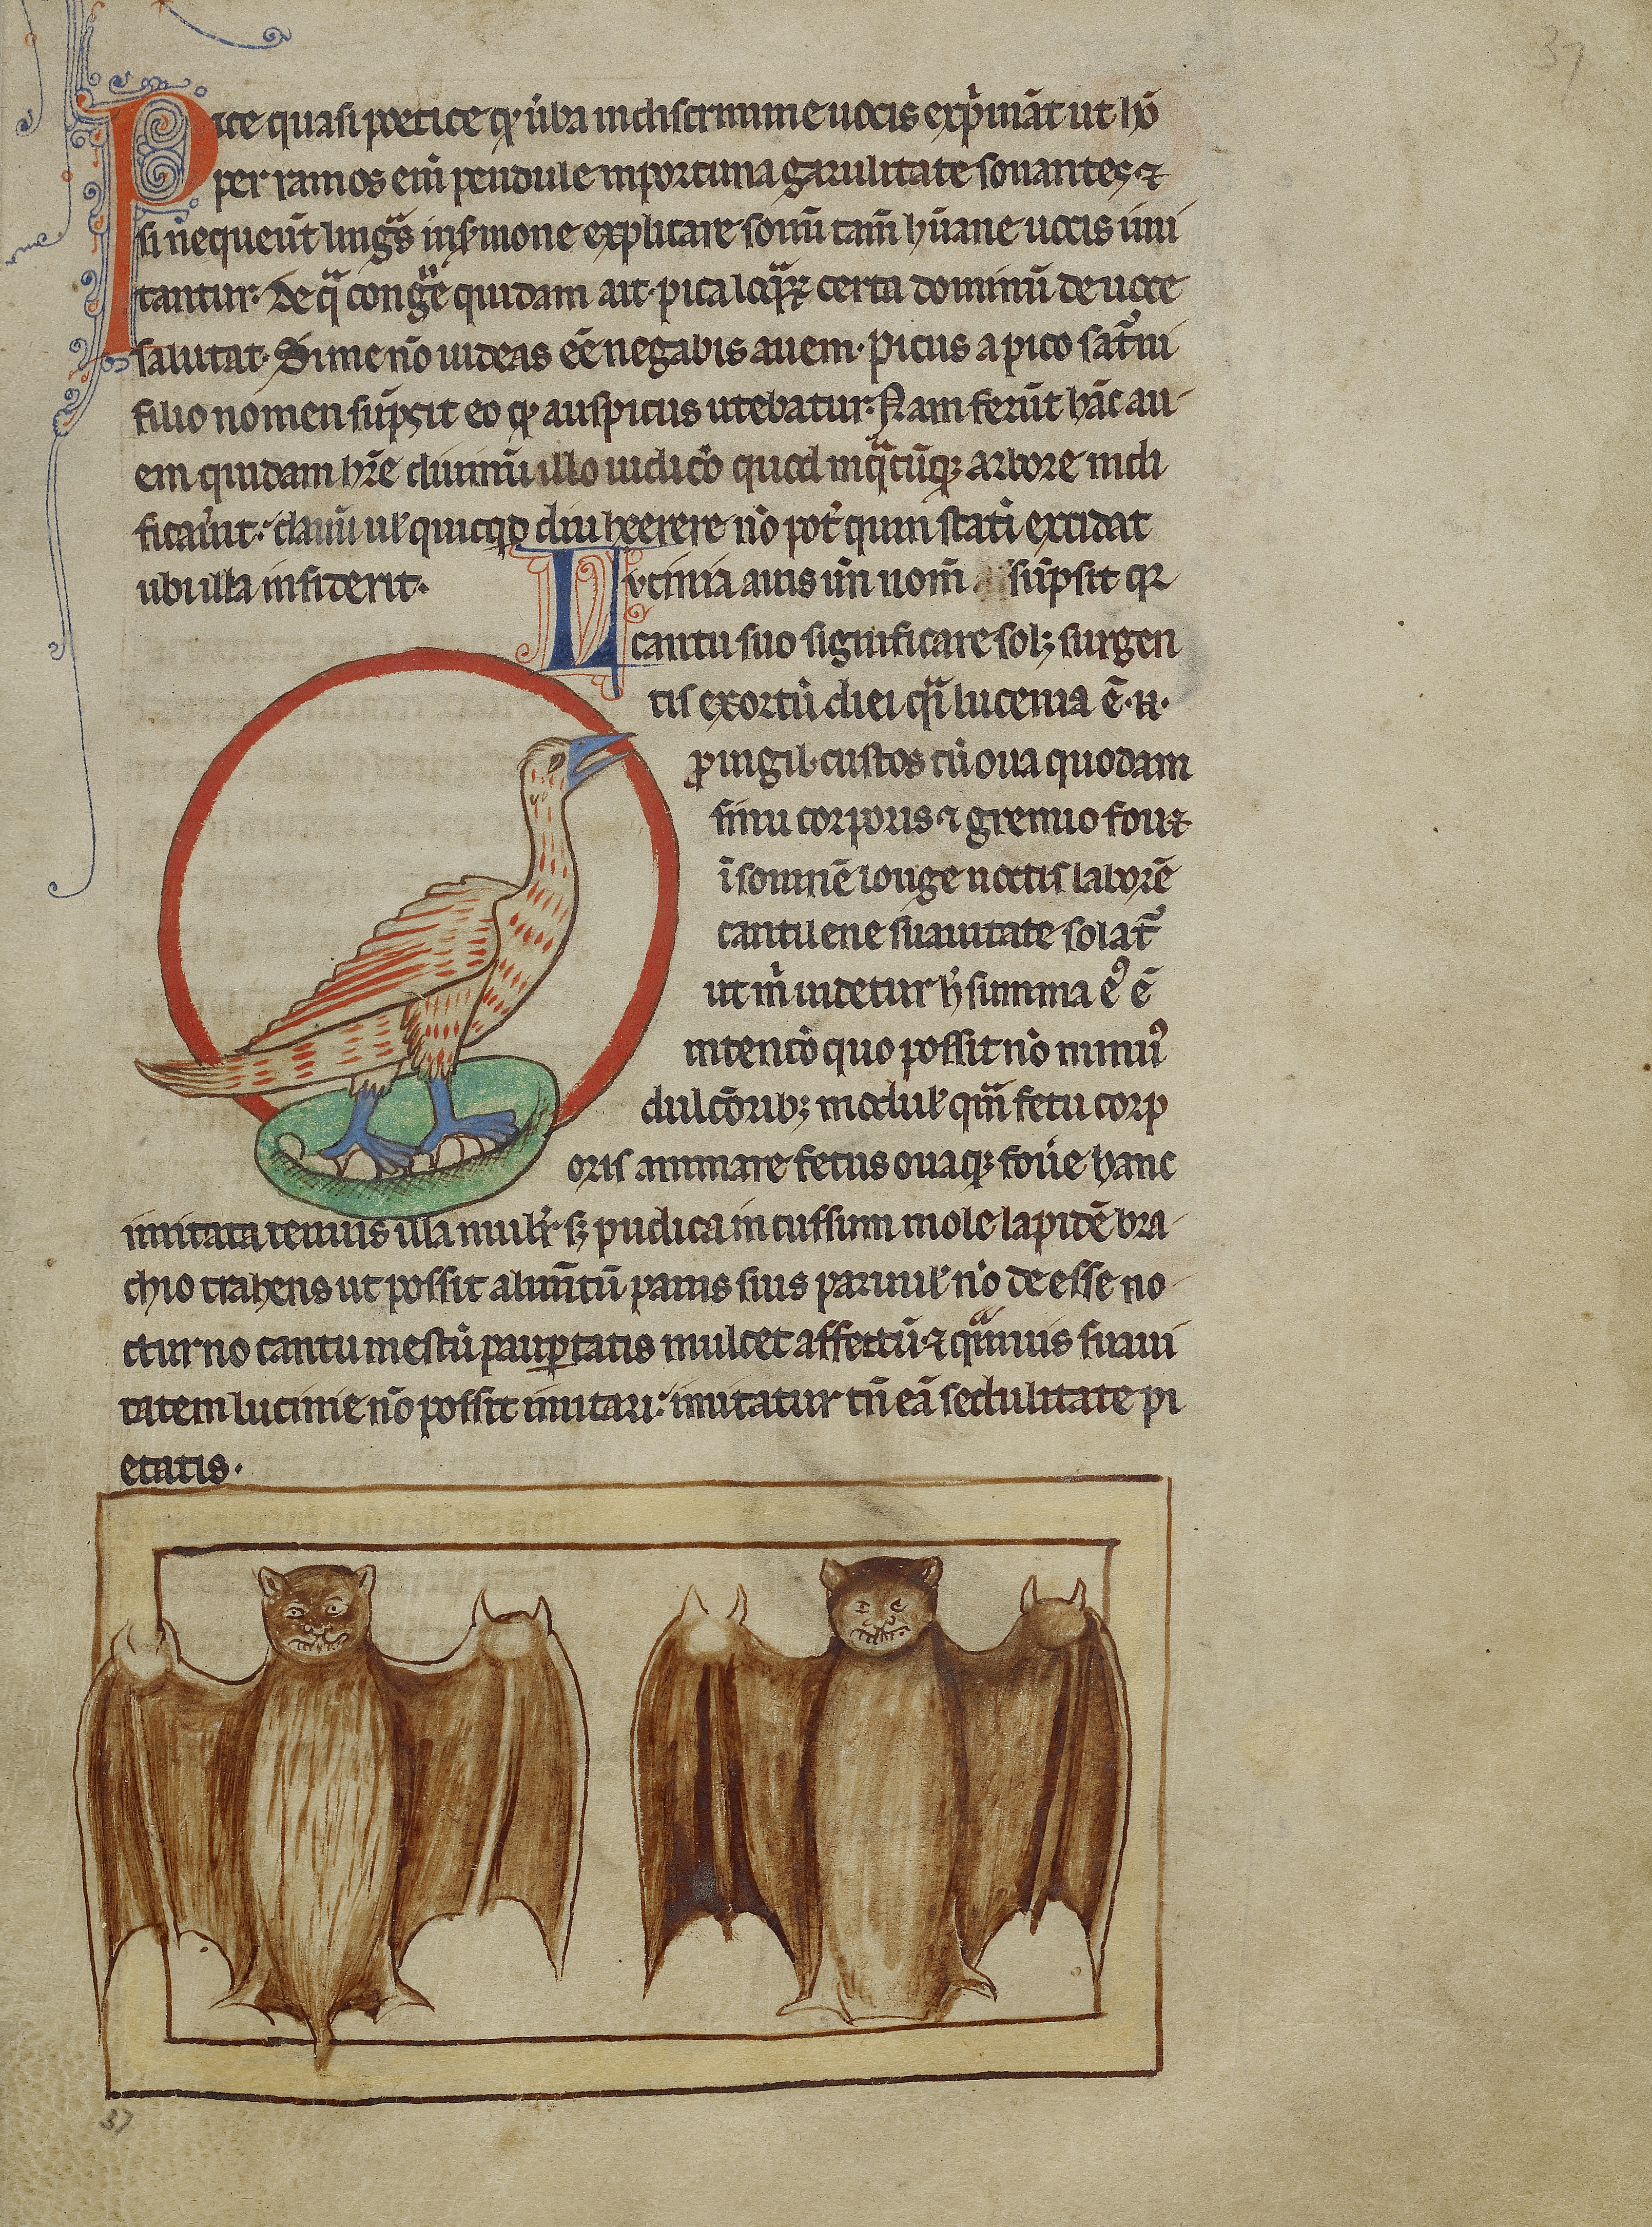 37
Pice quasi poetice qꝫ ůba in discrimine uocis exp̍māt ut hō
per ramos eni̅ pendule inportuna garulitate sonantes ⁊
si nequeūt linguᵃs in ẜmone explicare sonū tam̅ hūane uocis imi
tantur. De qᵃ congᵉ̅ quidam ait. pica loqᵃx certa dominū de uoce
salutat. Si me nō uideas eē negabis auem. Picus a pico satᷓni
filio nomen sūpsit eo qꝫ auspicus utebatur. Nam ferūt hāc au
em quidam hr̄e diuinū illo iudicō quod in qᵃcūqꝫ arbore nidi
ficauͥt: clauū uł quicqd diu heerere nō pot̾ quin stati̅ excidat
ubi illa insiderit. Lucinia auis un̄ nom̄ sūpsit qꝛ
cantu suo significare solꝫ surgen
tis exortū diei qͣi lucenia ē. n.
ꝑuigil. custos cū oua quodam
sinu corporis ⁊ gremio fou⁊
i̅somnē longe noctis laborē
cantilene suauitate solat᷑
ut m̍ uidetur h̍ summa eꝰ ē
intencō quo possit nō minuꝰ
dulcōribꝫ moduł qᷓm fetu corp
oris animare fetus ouaqꝫ fou̍e hanc
imitata tenuis illa mulr̍ sꝫ pudica incussum mole lapidē bra
chio trahens ut possit alim̄tū panis suis paruuł nō deesse no
cturno cantu mestū paup̲tatis mulcet affectū. ⁊ qᷓmuis suaui
tatem lucinie nō possit imitari: imitatur tn̄ eā sedulitate pi
etatis.
37